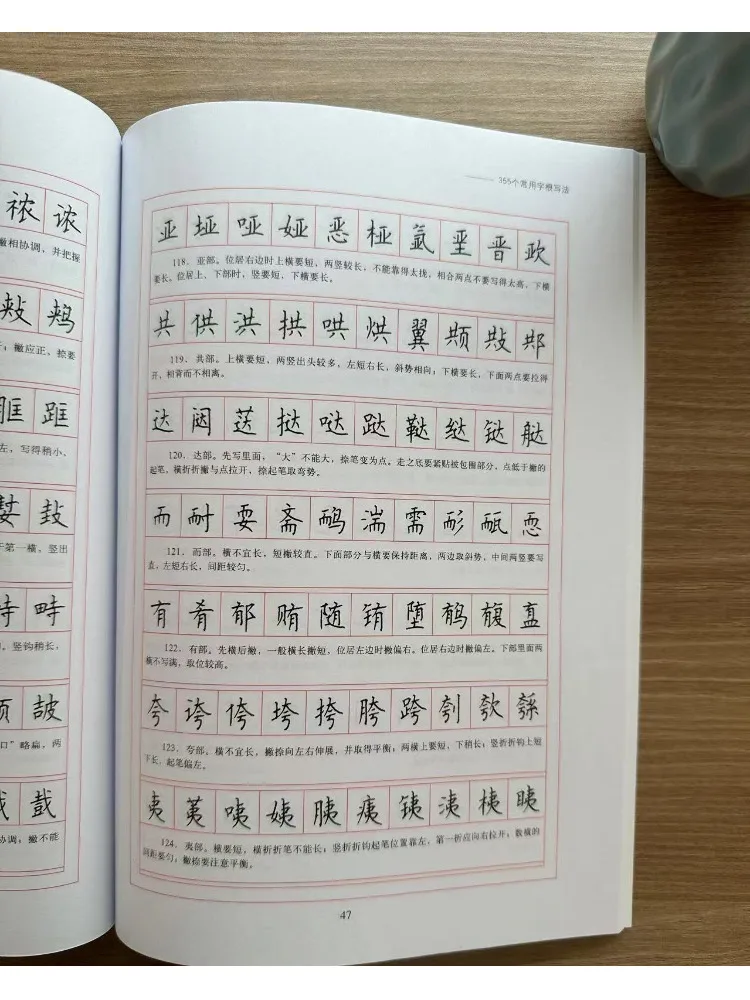 365个常用字根写法
亚 垭 哑 娅 恶 桠 氩 垩 晋
118．亚部。位居右边时上横要短，两竖较长，不能靠得太拢，相合两点不要写得太高，下横
要长。位居上、下部时，竖要短，下横要长。
共 供 洪 拱 哄 烘 翼
119．共部。上横要短，两竖出头较多，左短右长，斜势相向；下横要长，下面两点要拉得
开，相背而不相离。
达 闼 荙 挞 哒 跶 鞑 繨 铋
120．达部。先写里面，“大”不能大，捺笔变为点。走之底要紧贴被包围部分，点低于撇的
起笔，横折折撇与点拉开，捺起笔取弯势。
而 耐 耍 斋 鸸 湍 需 耏 恧
121．而部。横不宜长，短撇较直。下面部分与横要保持距离，两边取斜势，中间两竖要写
直，左短右长，间距较匀。
有 肴 郁 贿 随 铕 堕
122．有部。先横后撇，一般横长撇短，位居左边时撇偏右。位居右边时撇偏左。下部里面两
横不写满，取位较高。
夸 诗 侉 垮 挎 胯 跨 刳
123．夸部。横不宜长，撇捺向左右伸展，并取得平衡；两横上要短，下稍长；竖折折钩上短
下长，起笔偏左。
夷 荑 咦 姨 胰 痍 铗 洟 桋 眱
124．夷部。横要短，横折折笔不能长；竖折折钩起笔位置靠左，第一折应向右拉开；数横的
间距要匀；撇捺要注意平衡。
47
秾 诙
撇相协调，并把握
敊 鸪
；撇应正、掠要
眶 距
左，写得稍小、
于第一横。竖出
畤
。竖钩稍长，
皷
口”略扁，两
戬
协调；撇不能